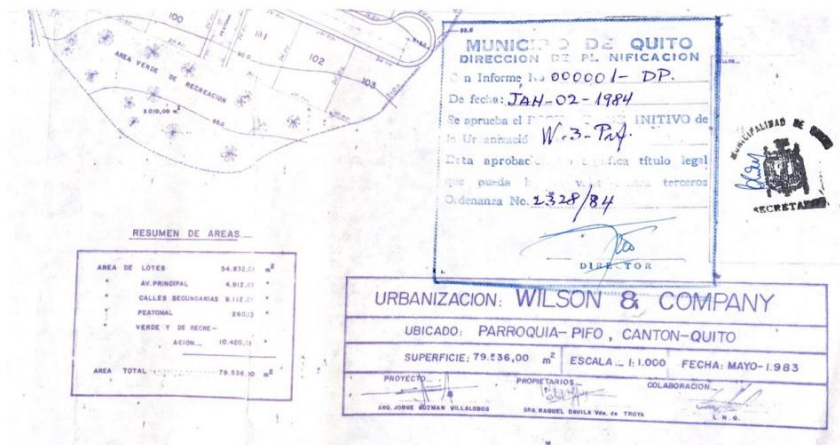 100
101
102
103
AREA VERDE DE RECREACION
3.010,00 m²
MUNICIPIO DE QUITO
DIRECCION DE PLANIFICACION
Con Informe No 000001- DP.
De fecha: JAN-02-1984
Se aprueba el INITIVO de
la Urbanizació W-3-
Esta aprobac fica título legal
que pueda terceros
Ordenanza No. 2328/84
DIRECTOR
MUNICIPALIDAD DE QUITO
SECRETARIA
RESUMEN DE AREAS
AREA DE LOTES 54.832,01 m²
" AV. PRINCIPAL 4.912,
" CALLES SECUNDARIAS 9.112,01 "
" PEATONAL 260,
" VERDE Y DE RECRE-
ACION 10.420, "
AREA TOTAL 79.536,00 m²
URBANIZACION: WILSON & COMPANY
UBICADO: PARROQUIA-PIFO, CANTON-QUITO
SUPERFICIE: 79.536,00 m² ESCALA 1:1.000 FECHA: MAYO-1.983
PROYECTO PROPIETARIOS COLABORACION
ARQ. JORGE GUZMAN VILLALOBOS SRA. RAQUEL DAVILA Vda. de TROYA L.N.G.